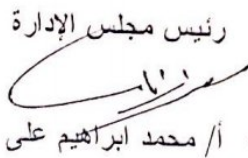 رئيس مجلس الإدارة
أ/ محمد ابراهيم على